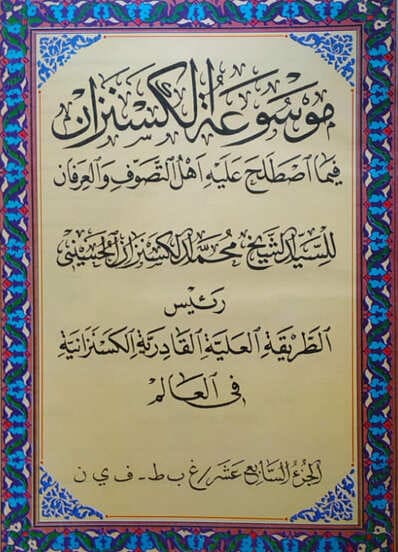 موسوعة الكسنزان
فيما اصطلح عليه أهل التصوف والعرفان
للسيد الشيخ محمد الكسنزان الحسيني
رئيس
الطريقة العلية القادرية الكسنزانية
في العالم
الجزء السابع عشر / غ ب ط - ف ي ن